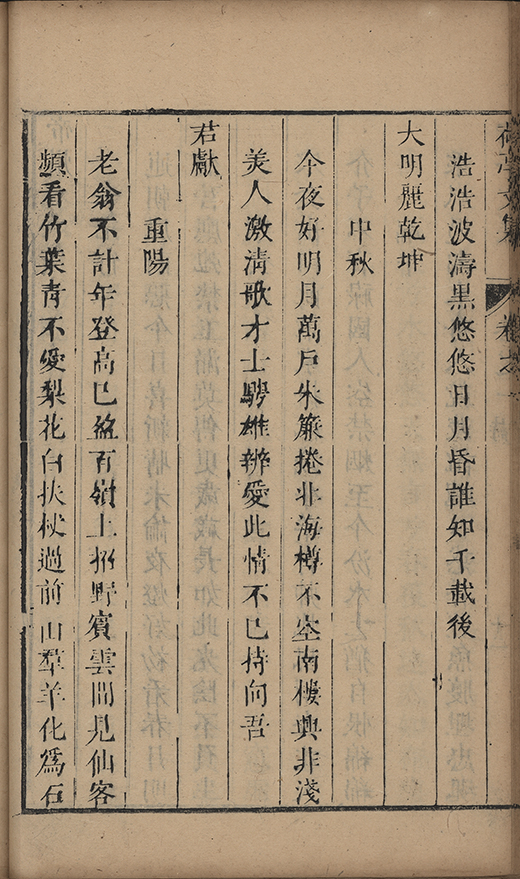 浩浩波濤黒悠悠日月昏誰知千載後
大明麗乾坤
中秋
今夜好明月萬戶朱簾捲非海樽不空南樓興非淺
美人激淸歌才士騁雄辨愛此情不已持向吾
君獻
重陽
老翁不計年登高已盈百嶺上招野賓雲間見仙客
頻看竹葉青不愛梨花白扶杖過前山羣羊化爲石